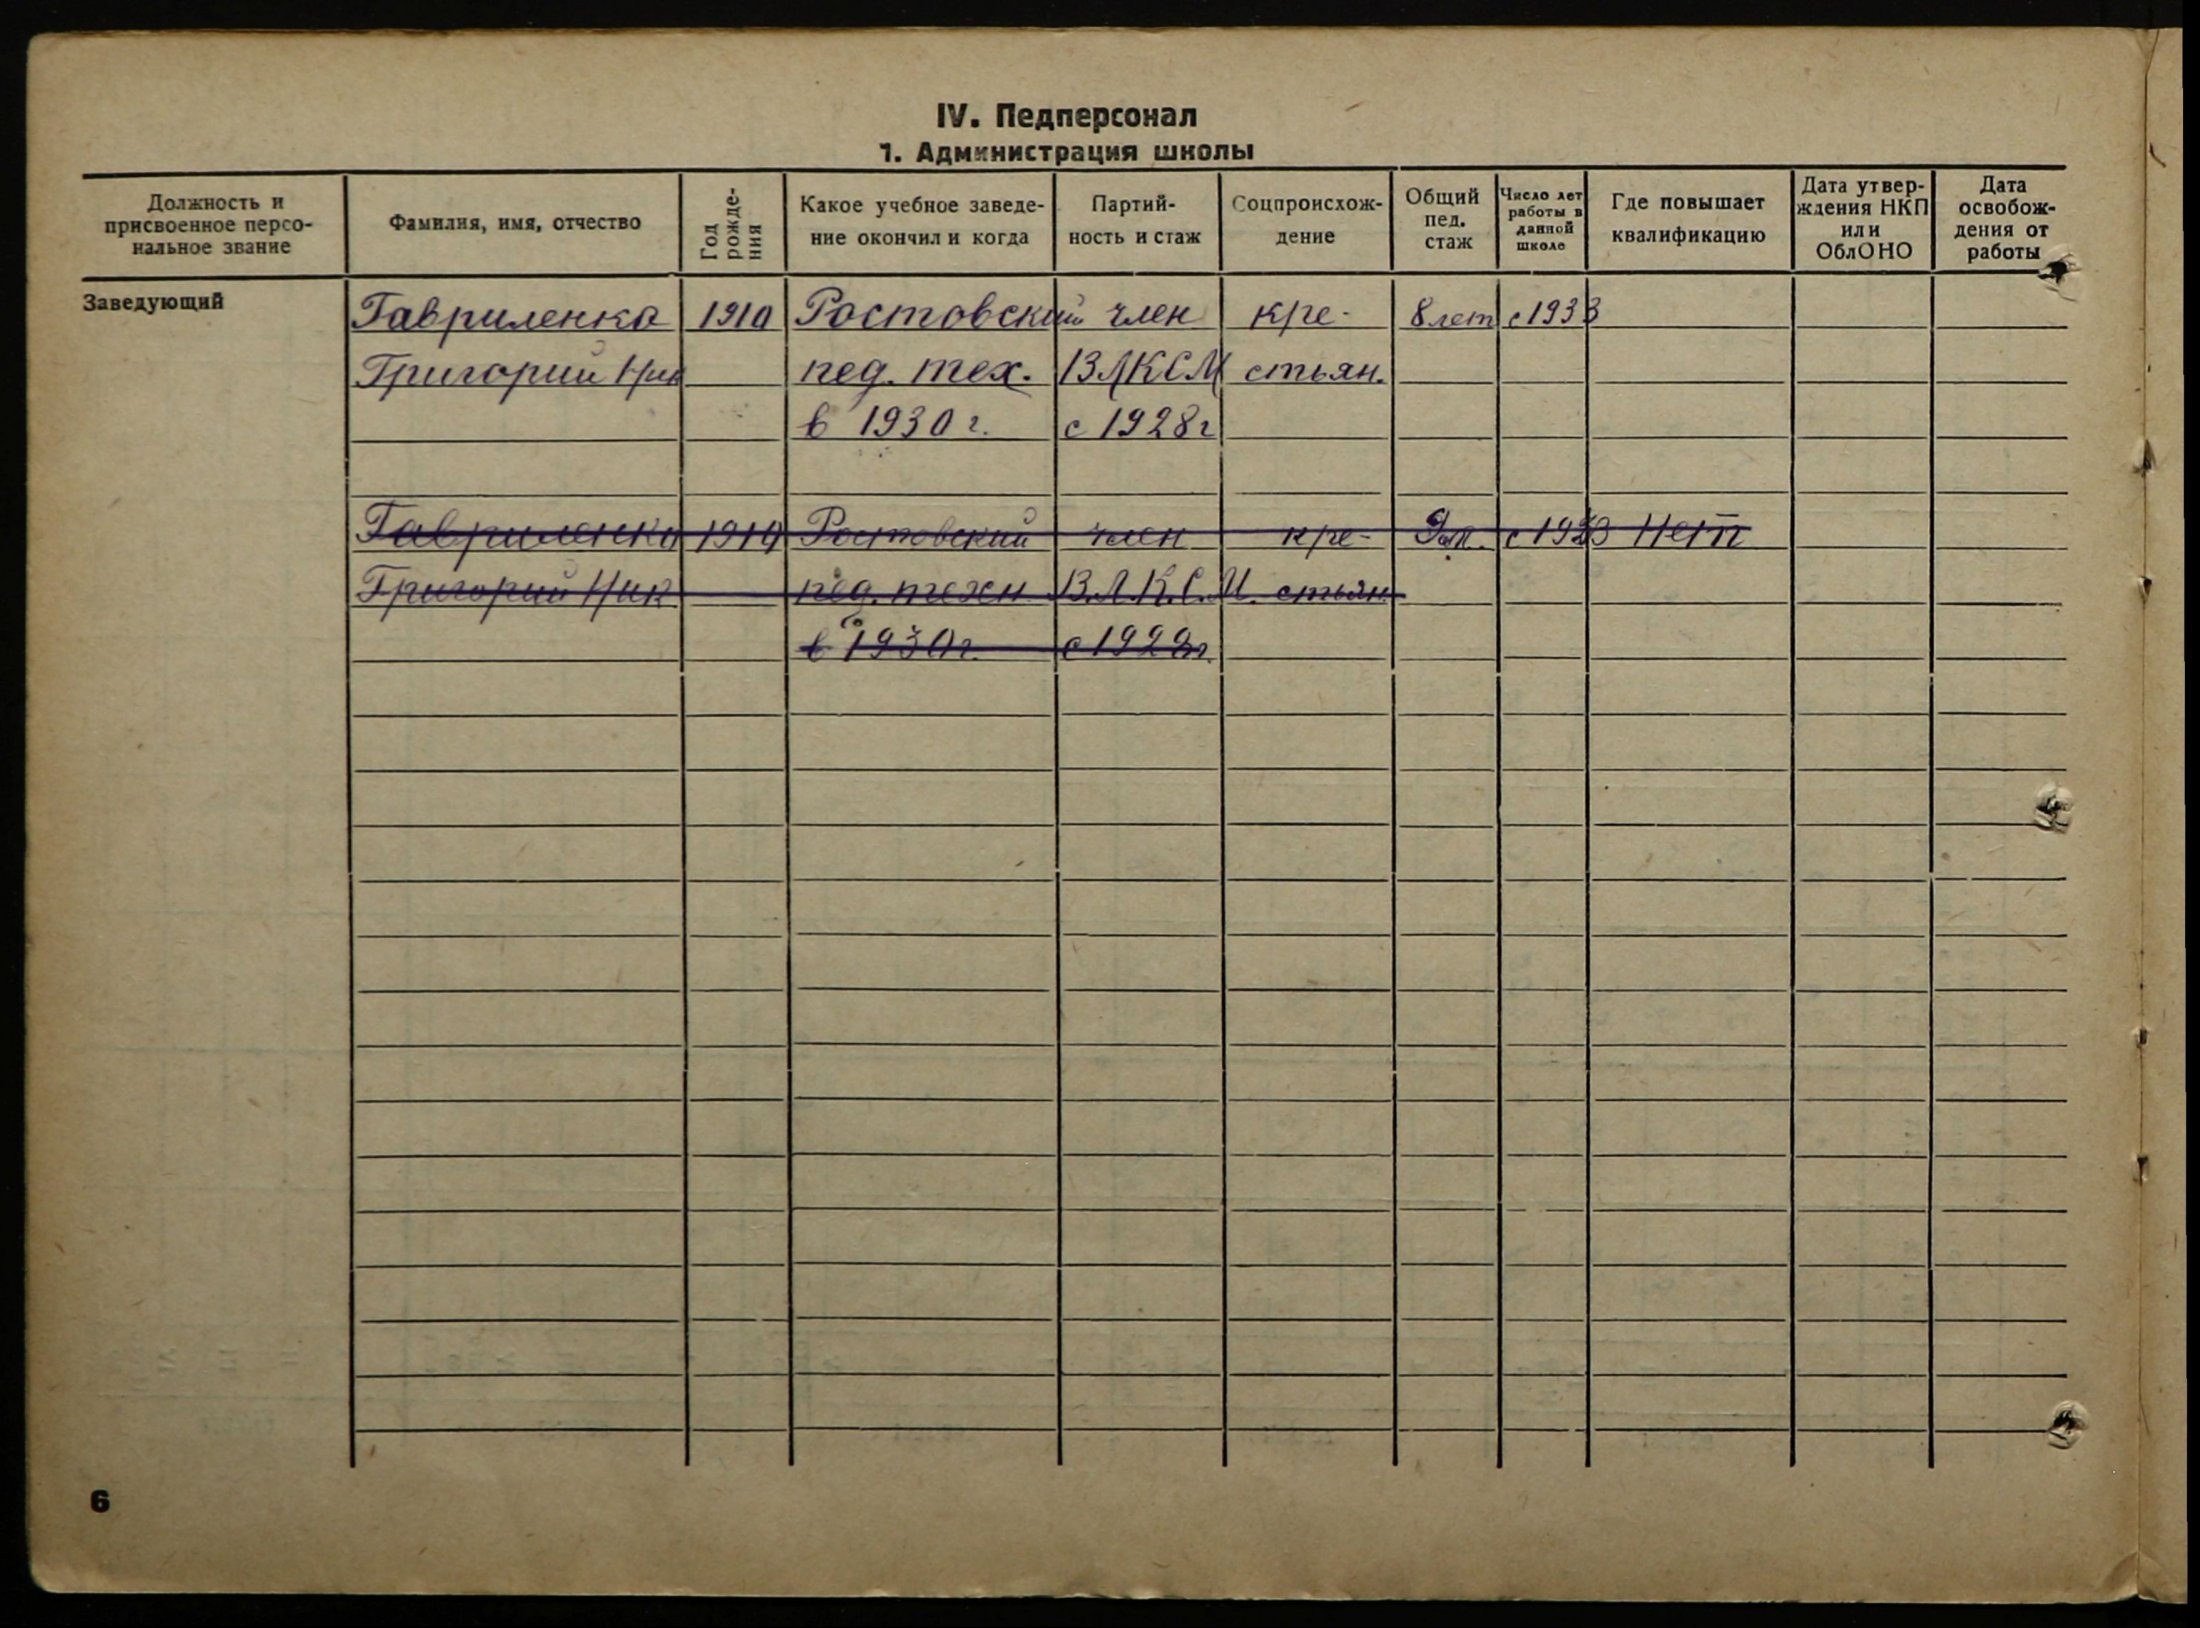 IV. Педперсонал
1. Администрация школы
Должность и присвоенное персональное звание | Фамилия, имя, отчество | Год рождения | Какое учебное заведение окончил и когда | Партийность и стаж | Соцпроисхождение | Общий пед. стаж | Число лет работы в данной школе | Где повышает квалификацию | Дата утверждения НКП или ОблОНО | Дата освобождения от работы
Заведующий | Гавриленко | 1910 | Ростовский | член | кре- | 8 лет | с 1933
Григорий Ник | пед. тех. | ВЛКСМ | стьян.
в 1930 г. | с 1928 г
Гавриленко | 1910 | Ростовский | член | кре- | с 1933 | Нет
Григорий Ник | пед. техн | В.Л.К.С.М. | стьян
в 1930 г. | с 1928 г.
6